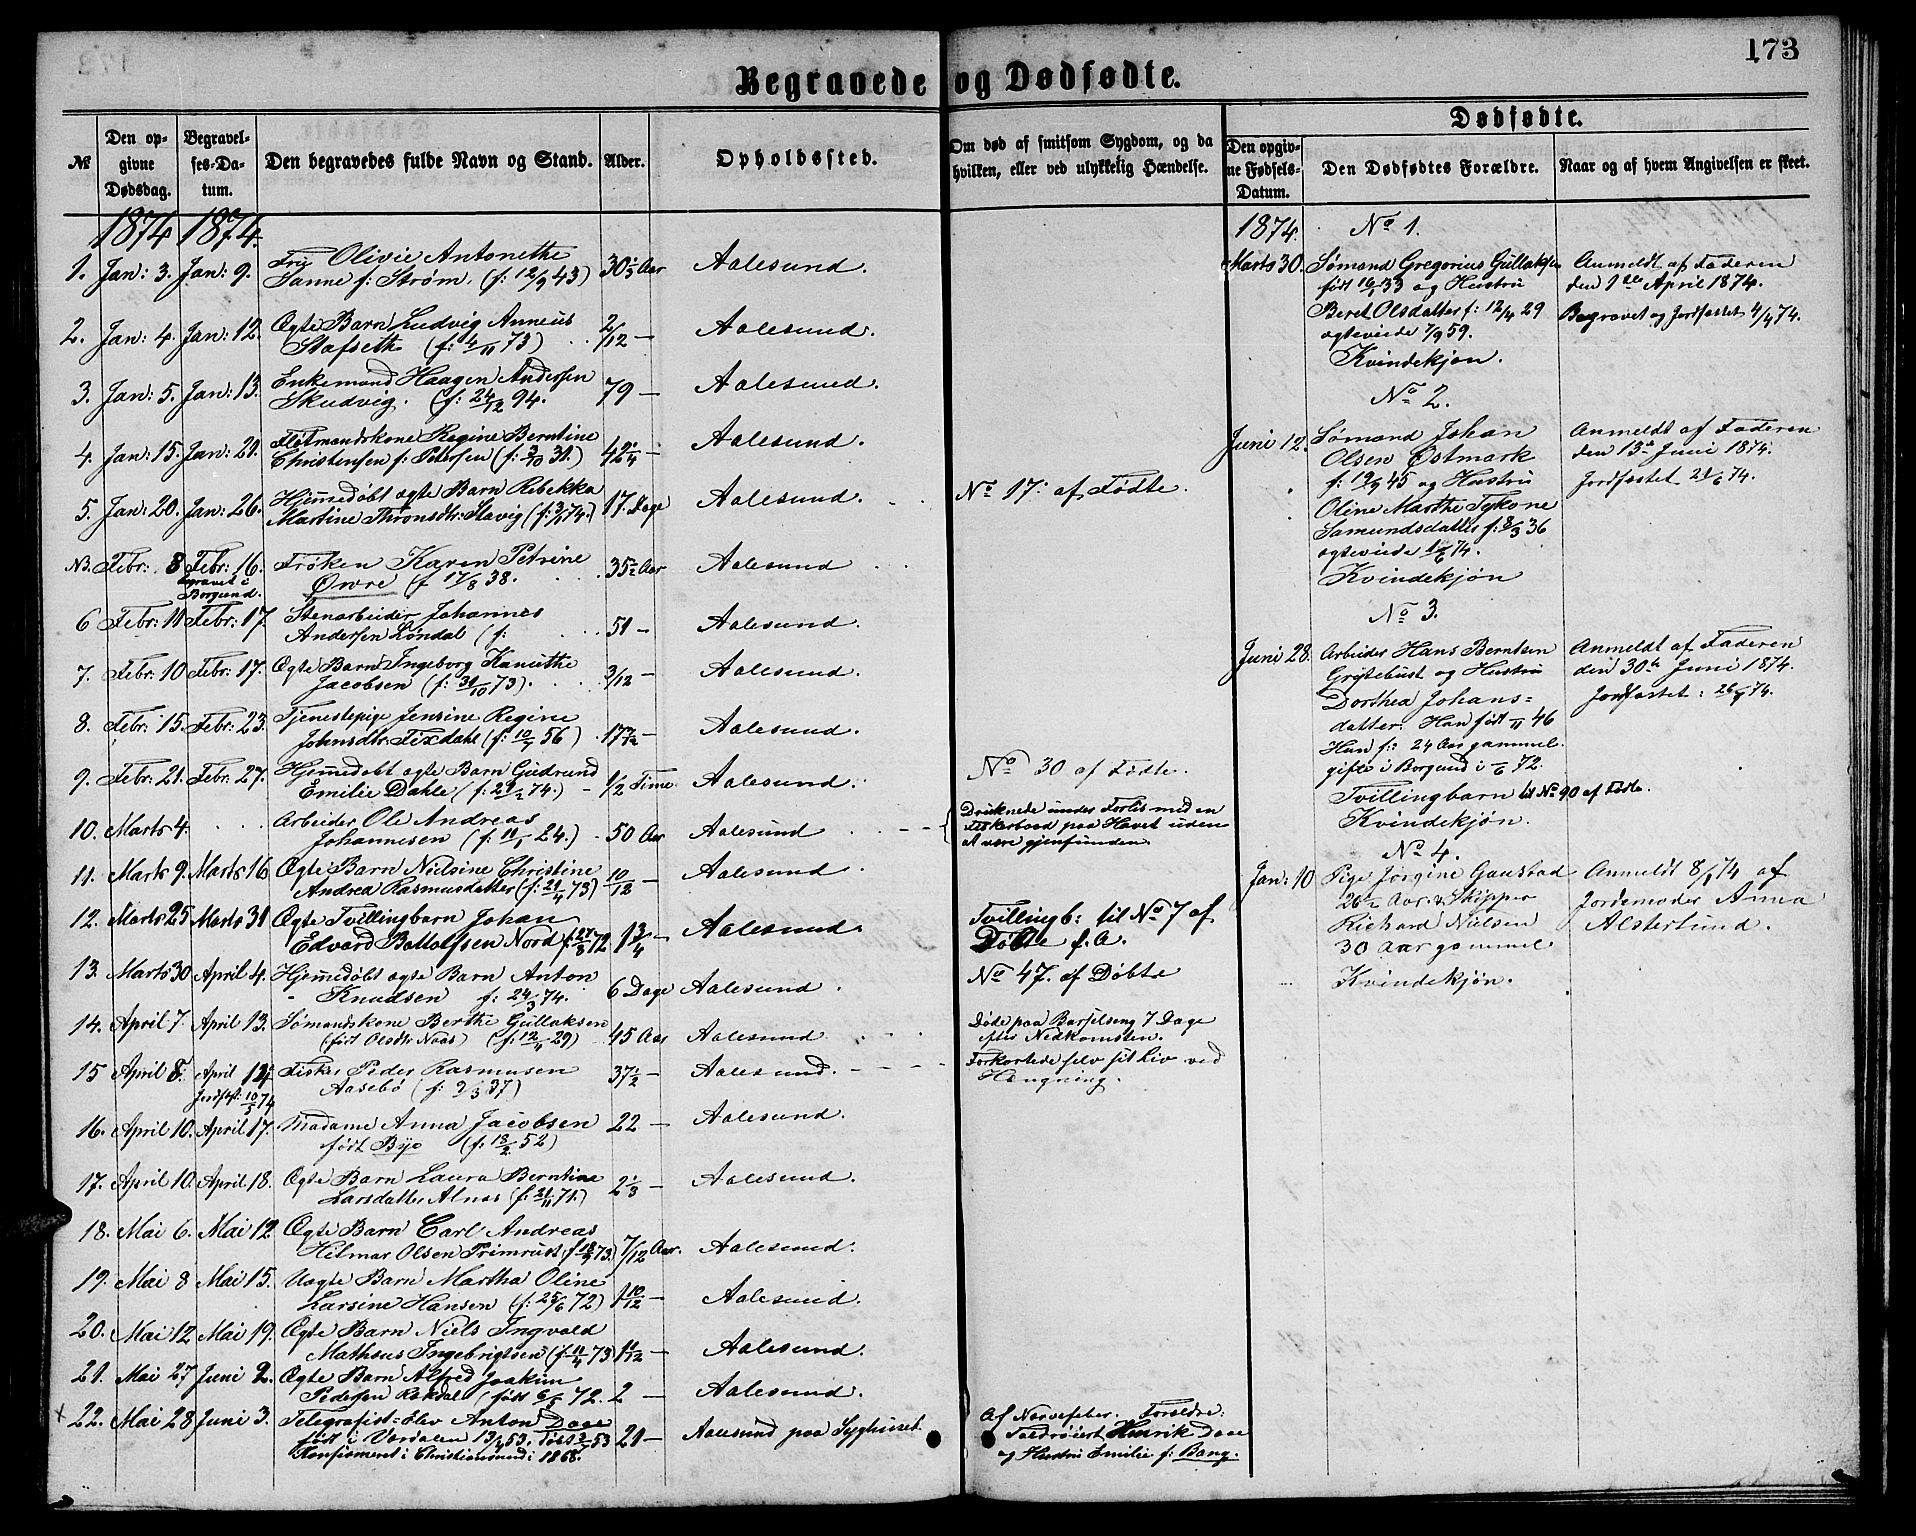 173
Begravede og Dødfødte.
No
Den opgivne Dødsdag.
Begravelses-Datum.
Den begravedes fulde Navn og Stand.
Alder.
Opholdssted.
Om død af smitsom Sygdom, og da hvilken, eller ved ulykkelig Hændelse.
1874 1874.
1. Jan: 3. Jan: 9. Fru Olivie Antonethe 30 Aar Aalesund.
Sanne f: Strøm. (f: 12/9 43)
2. Jan: 4. Jan: 12. Ægte Barn Ludvig Anneus 2/12 — Aalesund.
Stafseth (f: 4/11 73)
3. Jan: 5. Jan: 13. Enkemand Haagen Andersen 79 — Aalesund.
Skudvig. (f: 24/12 94.
4. Jan: 15. Jan: 21. Flotmandskone Regine Berntine 42 1/4 — Aalesund.
Christensen f: Petersen (f: 3/10 31.)
5. Jan: 20. Jan: 26. Hjemmedøbt ægte Barn Rebekka 17 Dage Aalesund. No 17: af Fødte.
Martine Thronsdtr: Slavig (f: 3/1 74.)
N3. Febr: 8 Febr: 16. Frøken Karen Petrine 35 1/2 Aar Aalesund
begravet i Borgund. Øwre (f 17/8 38.
6 Febr: 11 Febr: 17 Stenarbeider Johannes 51 — Aalesund.
Andersen Løndal (f:
7. Febr: 10 Febr: 17. Ægte Barn Ingeborg Kanuthe 3/12 — Aalesund.
Jacobsen (f: 31/10 73).
8. Febr: 15. Febr: 23. Tjenestepige Jensine Regine 17 — Aalesund.
Johnsdtr: Fixdahl (f: 10/7 56)
9. Febr: 21. Febr: 27. Hjemmedøbt ægte Barn Gudrund 1/2 Time Aalesund. No 30 af Fødte.
Emilie Dahle (f: 21/2 74.)
10. Marts 4. Arbeider Ole Andreas 50 Aar Aalesund Druknede under Forlis med en
Johannesen (f: 11/1 24.) Fiskerbaad paa Havet uden
at være gjenfunden.
11. Marts 9. Marts 16 Ægte Barn Nielsine Christine 10/12 — Aalesund.
Andrea Rasmusdatter (f: 21/4 73)
12. Marts 25 Marts 31 Ægte Tvillingbarn Johan 1 3/4 — Aalesund. Tvillingb: til No 7 af
Edvard Bottolfsen Nord f: 27/8 72. Døbte f. A.
13. Marts 30 April 4. Hjemmedøbt ægte Barn Anton 6 Dage Aalesund. No 47. af Døbte
Knudsen f: 24/3 74.
14. April 7. April 13. Sømandskone Berthe Gullaksen 45 Aar Aalesund Døde paa Barselseng 7 Dage
(født Olsdtr Naas) (f: 12/4 29) efter Nedkomsten.
15 April 8. April 14 Fisker Peder Rasmusen 37 1/2 — Aalesund. Forkortede selv sit Liv ved
Jordfst: 10/5 74 Aasebø (f: 37) Hængning.
16. April 10. April 17. Madame Anna Jacobsen 22 — Aalesund.
født Bye (f: 18/2 52)
17. April 10. April 18. Ægte Barn Laura Berntine 2 1/3 — Aalesund.
Larsdatter Alnæs (f: 21/11 71.)
18. Mai 6. Mai 12 Ægte Barn Carl Andreas 7/12 Aar. Aalesund.
Hilmar Olsen Frimrust 73.)
19. Mai 8 Mai 15. Uægte Barn Martha Oline 1 10/12 — Aalesund.
Larsine Hansen (f: 25/6 72)
20. Mai 12 Mai 19. Ægte Barn Niels Ingvald 1 1/12 — Aalesund.
Matheus Ingebrigtsen (f 11/4 73
21. Mai 27 Juni 2. Ægte Barn Alfred Joakim 2 — Aalesund.
Pedersen Rekdal (født 6/5 72.
22. Mai 28 Juni 3. Telegrafist-Elev Anton Daae 21 — Aalesund paa Sygehuset. Af Nervefeber. Forældre:
født i Værdalen 13/4 53. døbt 53 Toldrorert Henrik Daae
Konfirmeret i Christiansund: 1868. og Hustru Emilie f: Bang.
Dødfødte.
Den opgivne Fødsels-Datum.
Den Dødfødtes Forældre.
Naar og af hvem Angivelsen er skeet.
1874. No 1.
Marts 30. Sømand Gregorius Gullaksen Anmeldt af Faderen
født 16/1 33 og Hustru den 1ste April 1874.
Beret Olsdatter f: 12/4 29 Begravet og Jordfæstet 4/4 74.
ægteviede 7/9 59.
Kvindekjøn.
No 2.
Juni 12. Sømand Johan Anmeldt af Faderen
Olsen Østmark den 13de Juni 1874.
f: 19/9 45 og Hustru Jordfæstet 21/6 74.
Oline Marthe Tykone
Samundsdatter f: 8/3 36
ægteviede 74.
Kvindekjøn
No 3.
Juni 28. Arbeider Hans Berntsen Anmeldt af Faderen
Grytebust og Hustru den 30te Juni 1874.
Dorthea Johans- Jordfæstet: 74.
datter: Han født 46
Hun f: 24 Aar gammel.
gifte i Borgund i 72.
Tvillingbarn til No 90 af Fødte.
Kvindekjøn.
No 4.
Jan: 10 Pige Jørgine Gaustad Anmeldt 8/1 74 af
26 Aar. & Skipper Jordemoder Anna
Richard Nielsen Alsterlund.
30 Aar gammel
Kvindekjøn.